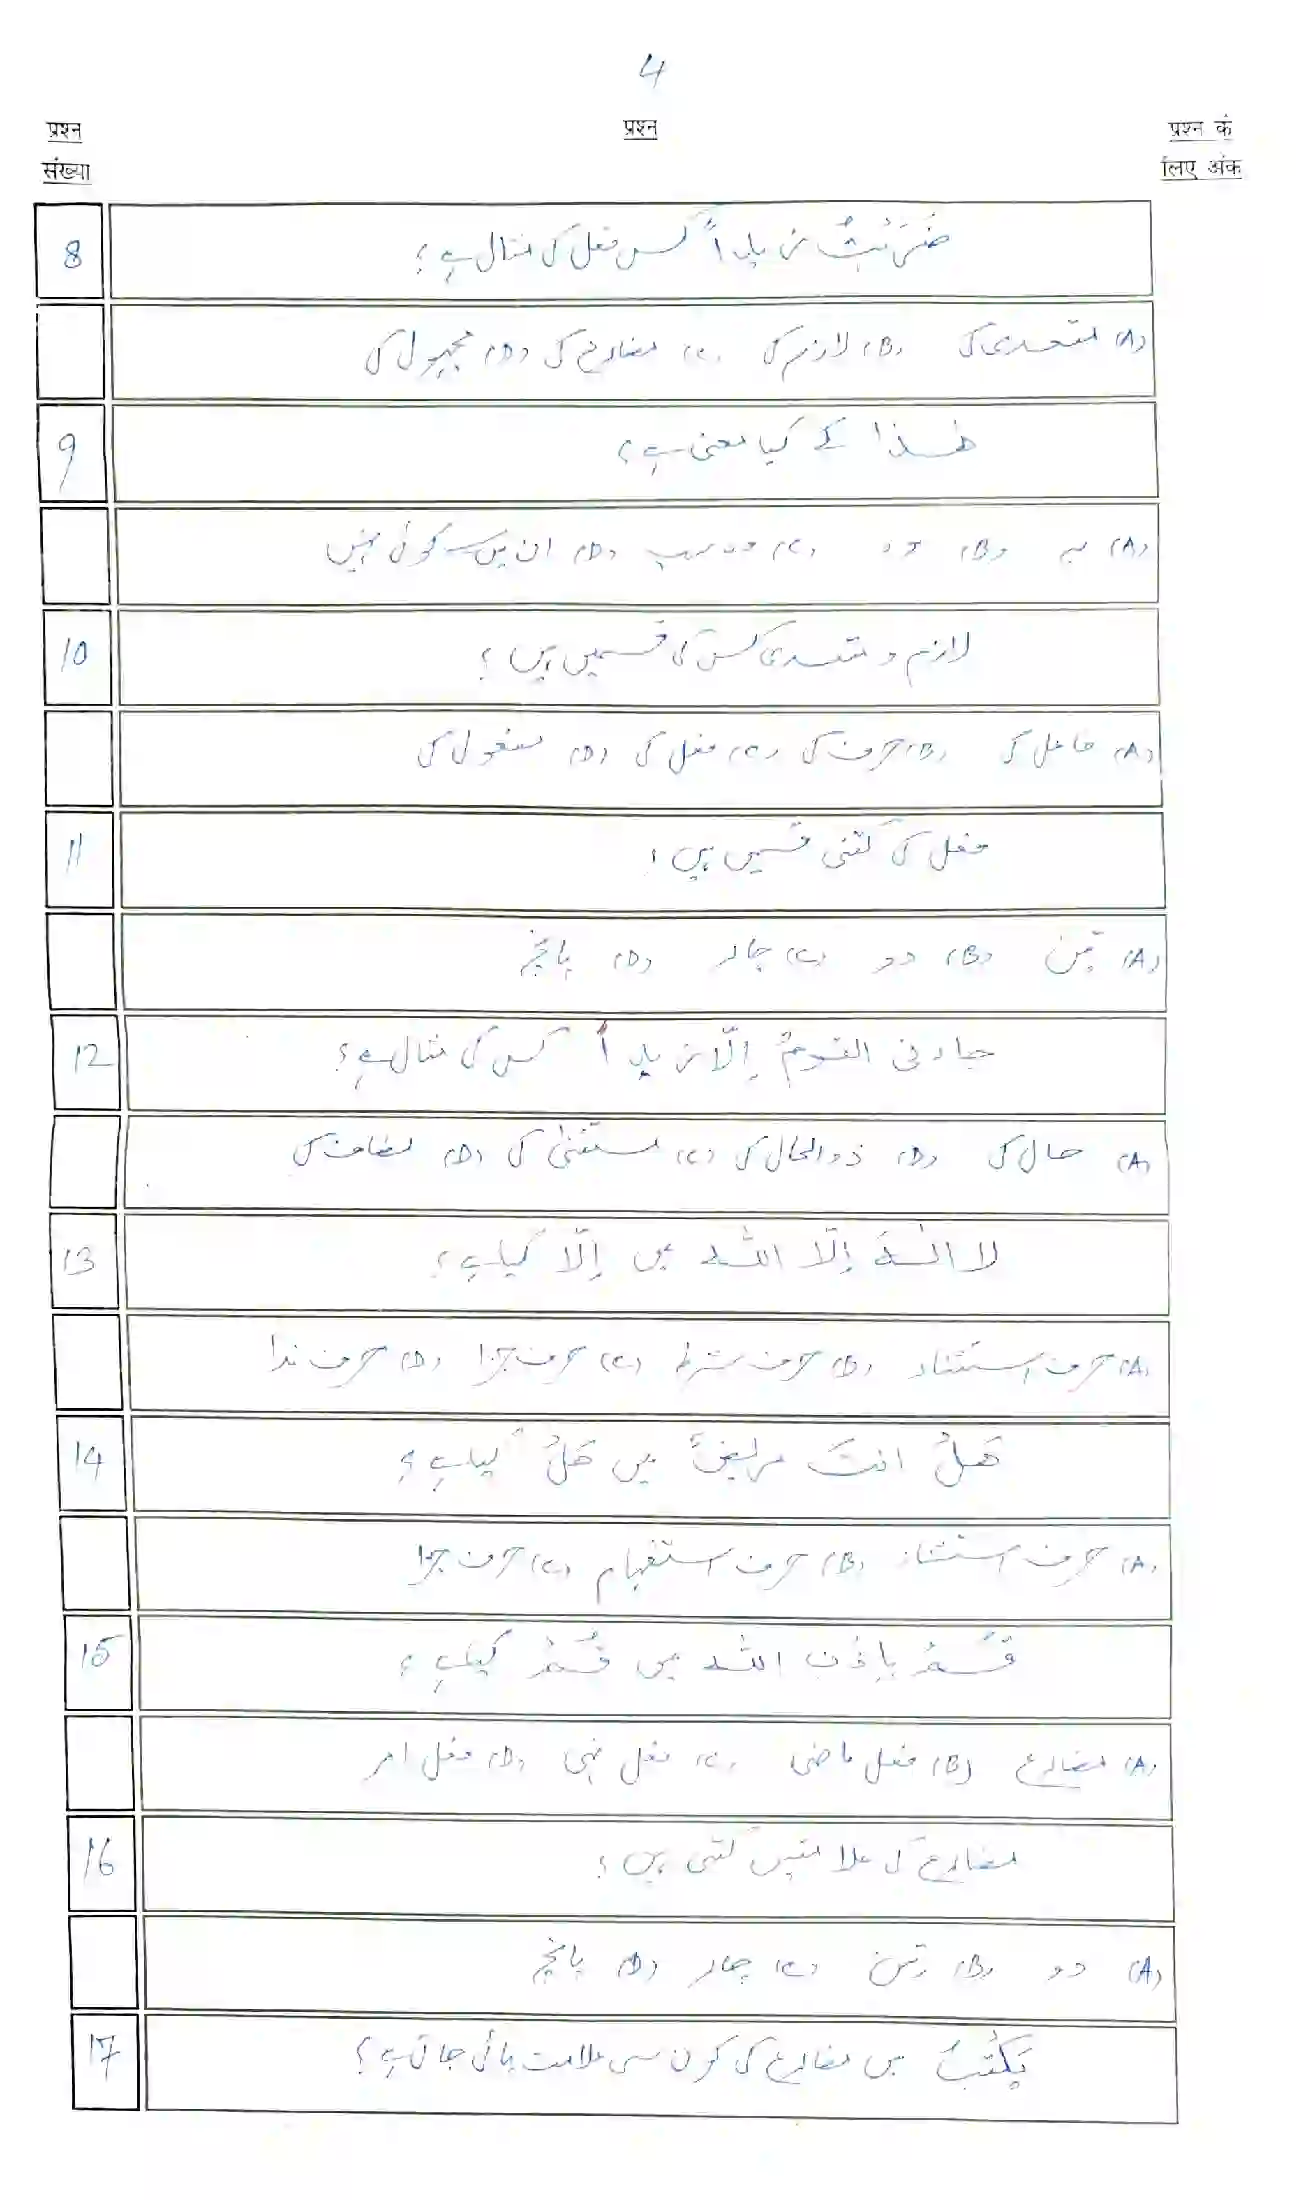 4
प्रश्न संख्या
प्रश्न
प्रश्न के लिए अंक
8 ضَرَبْتُ زیداً کس فعل کی مثال ہے؟
(A) متعدی کی (B) لازم کی (C) مضارع کی (D) مجہول کی
9 ھٰذا کے کیا معنی ہے؟
(A) یہ (B) وہ (C) وہ سب (D) ان میں سے کوئی نہیں
10 لازم و متعدی کس کی قسمیں ہیں؟
(A) فاعل کی (B) حرف کی (C) فعل کی (D) مفعول کی
11 فعل کی کتنی قسمیں ہیں؟
(A) تین (B) دو (C) چار (D) پانچ
12 جاءنی القومُ اِلّا زیداً کس کی مثال ہے؟
(A) حال کی (B) ذوالحال کی (C) مستثنیٰ کی (D) مضاف کی
13 لا الٰہَ اِلّا اللہ میں اِلّا کیا ہے؟
(A) حرف استثناء (B) حرف شرط (C) حرف جزا (D) حرف ندا
14 ھَلْ انتَ مریضٌ میں ھَلْ کیا ہے؟
(A) حرف استثناء (B) حرف استفہام (C) حرف جزا
15 قُمْ باِذن اللہ میں قُمْ کیا ہے؟
(A) مضارع (B) فعل ماضی (C) فعل نہی (D) فعل امر
16 مضارع کی علامتیں کتنی ہیں؟
(A) دو (B) تین (C) چار (D) پانچ
17 یَکْتُبُ میں مضارع کی کون سی علامت پائی جاتی ہے؟